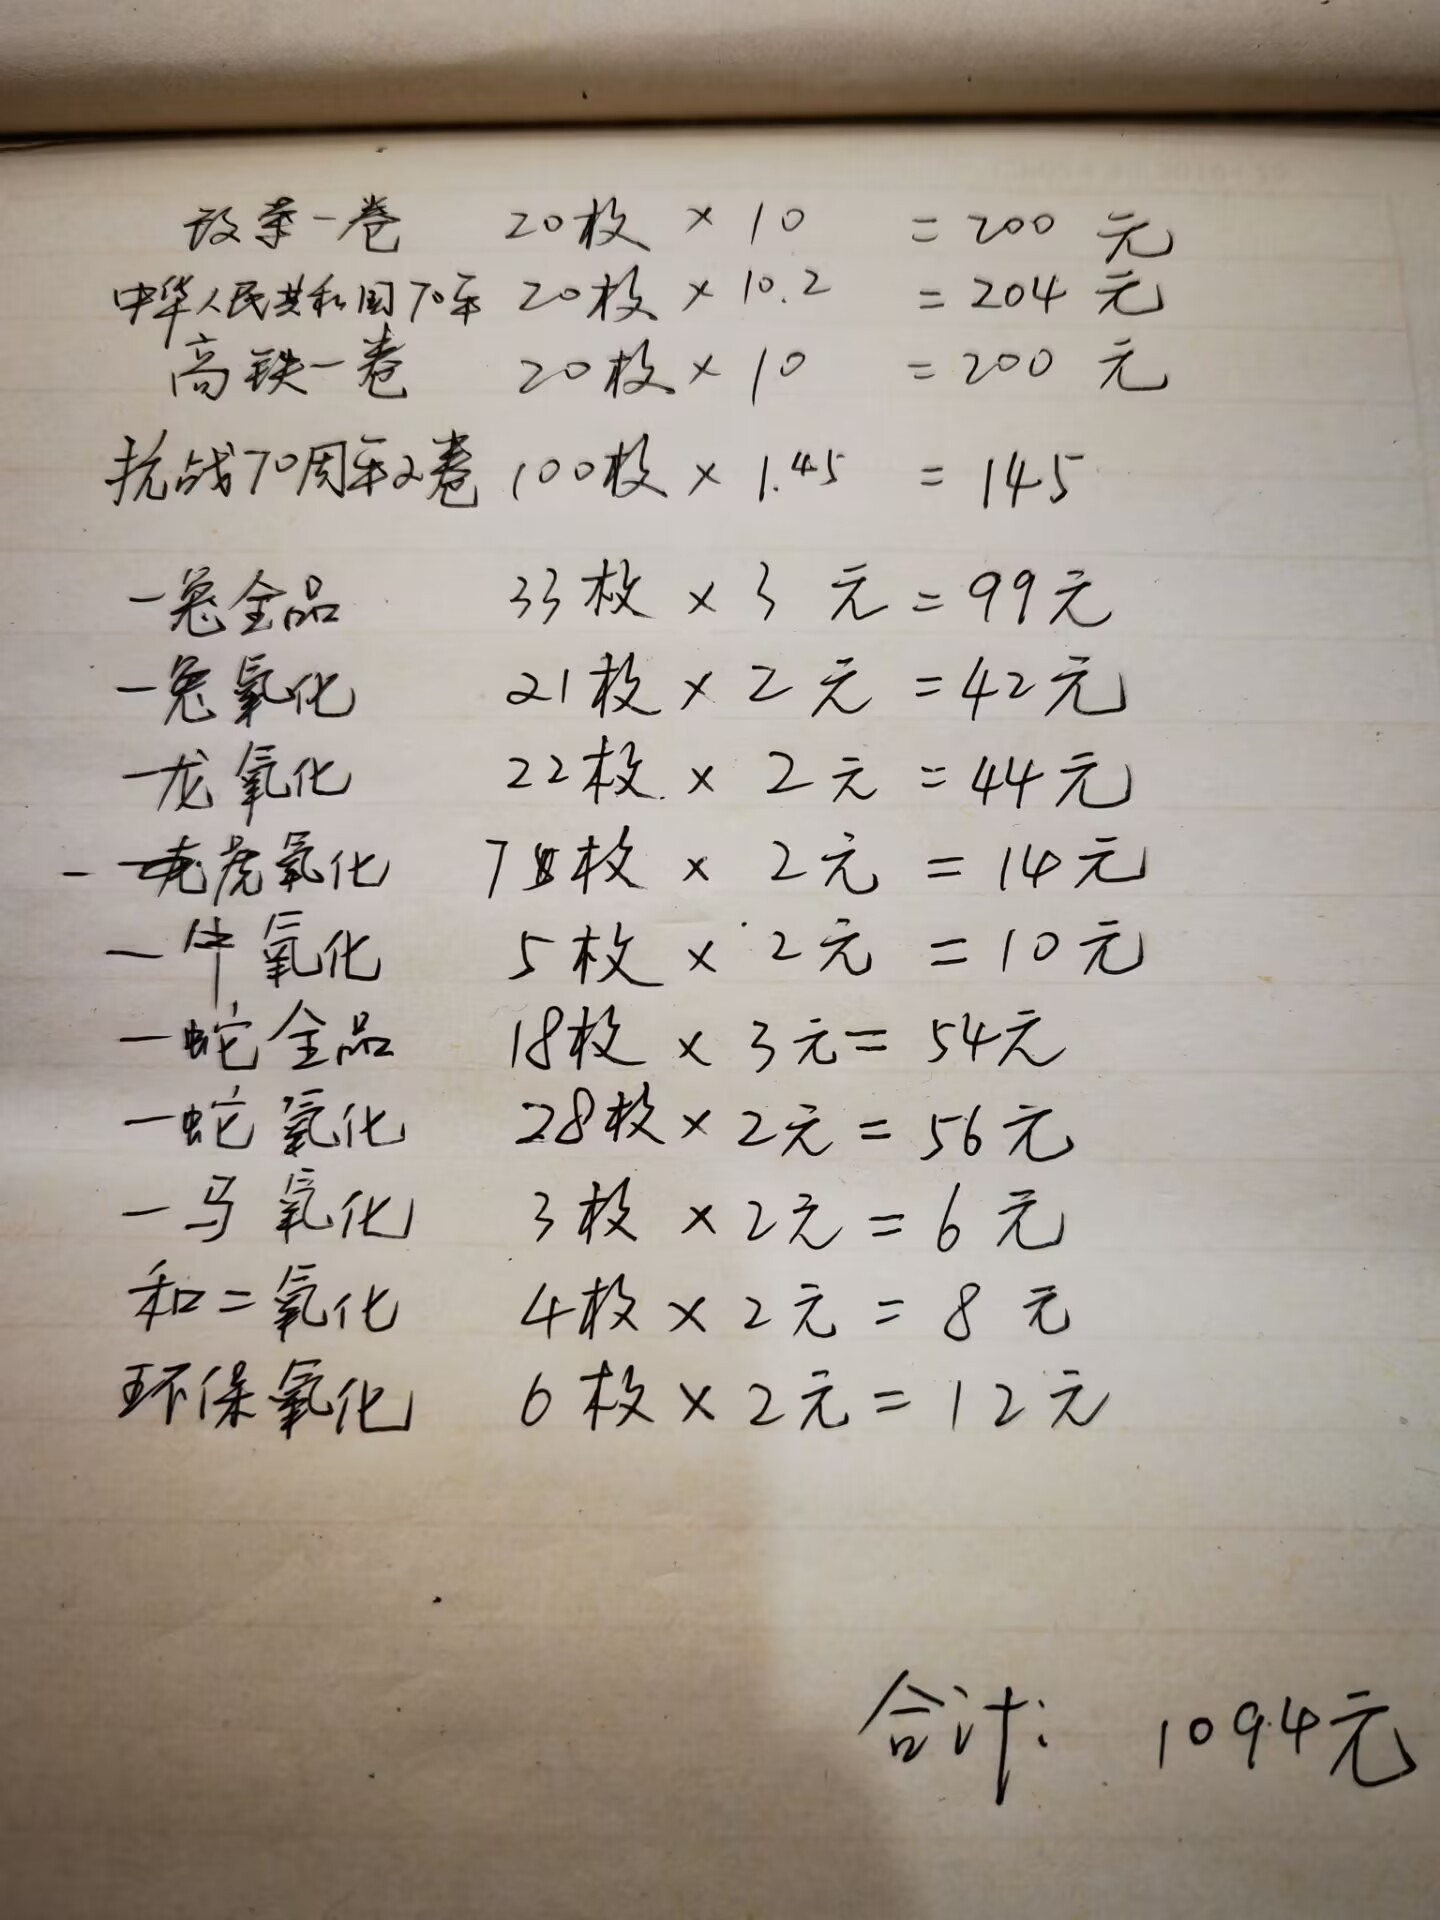 改革一卷 20枚 × 10 = 200 元
中华人民共和国70年 20枚 × 10.2 = 204 元
高铁一卷 20枚 × 10 = 200 元
抗战70周年2卷 100枚 × 1.45 = 145
一兔全品 33枚 × 3 元 = 99元
一兔氧化 21枚 × 2 元 = 42元
一龙氧化 22枚 × 2元 = 44元
一虎氧化 7枚 × 2元 = 14元
一牛氧化 5枚 × 2元 = 10元
一蛇全品 18枚 × 3元 = 54元
一蛇氧化 28枚 × 2元 = 56元
一马氧化 3枚 × 2元 = 6元
和二氧化 4枚 × 2元 = 8 元
环保氧化 6枚 × 2元 = 12元
合计: 1094元